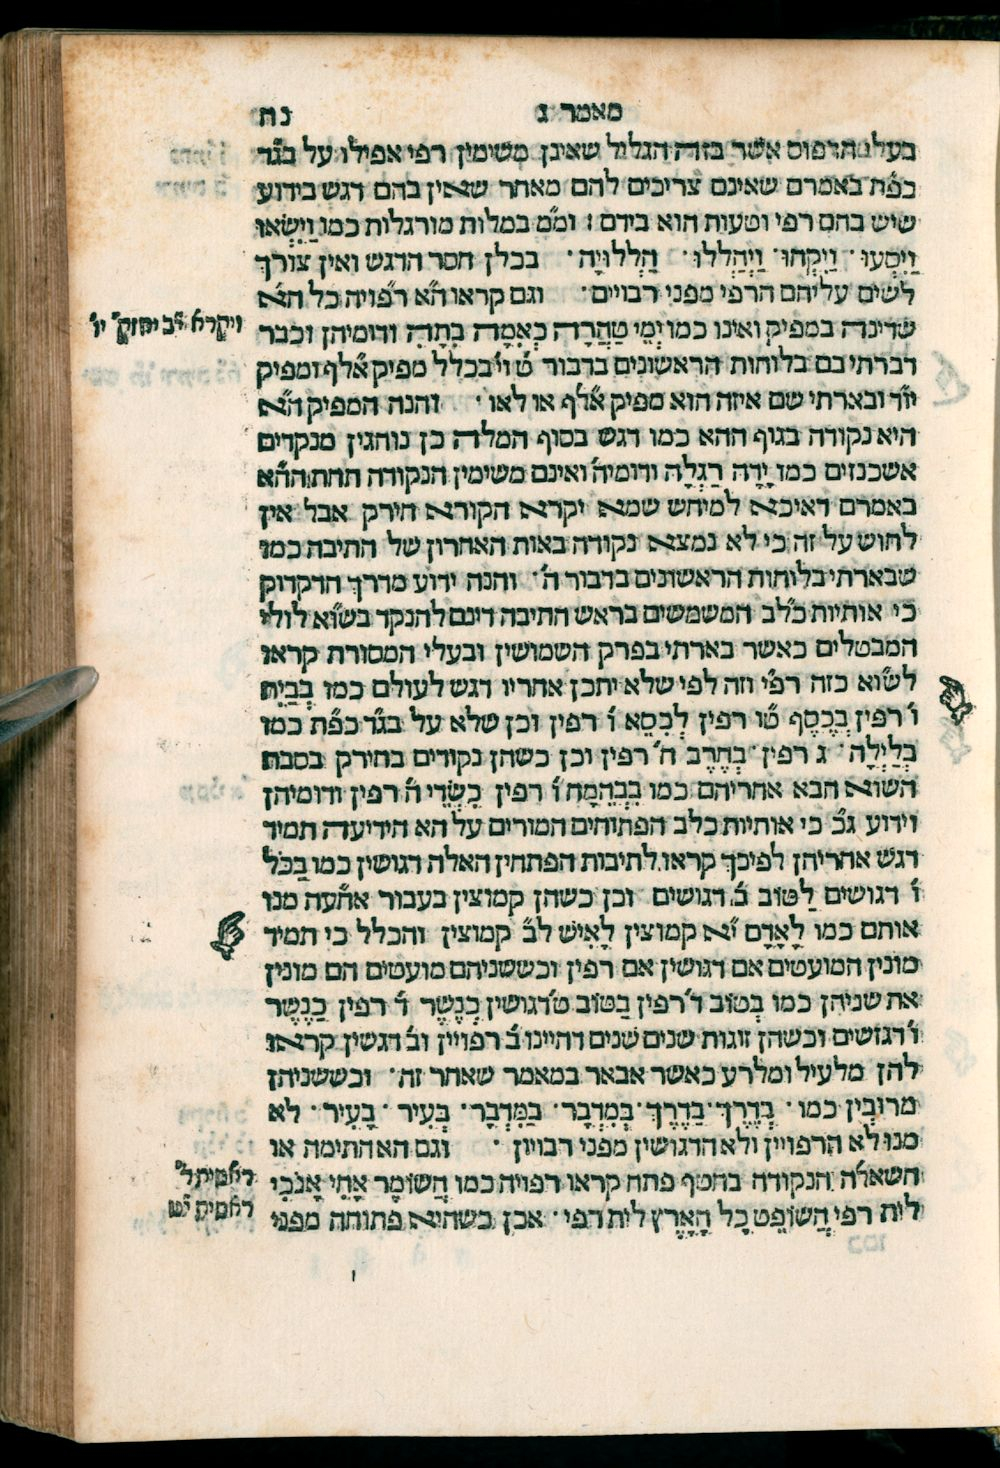 מאמר ג נח
בעלי הדפוס אשר בזה הגליל שאינן משימין רפי אפילו על בג״ד
כפ״ת באמרם שאינם צריכים להם מאחר שאין בהם דגש בידוע
שיש בהם רפי וטעות הוא בידם : ומ״מ במלות מורגלות כמו וַיִשְׂאוּ
וַיִסְעוּ · וַיִקְחוּ · וַיְהַלְלוּ · הַלְלוּיָה · בכלן חסר הדגש ואין צורך
לשים עליהם הרפי מפני רבויים · וגם קראו ה״א רפויה כל ה״א
שדינה במפיק ואינו כמו יְמֵי טָהֳרָהּ כְאִמָהּ בִתָהּ ודומיהן וכבר
ויקרא י״ב יחזק״ י״ו
דברתי בם בלוחות הראשונים בדבור ט׳ וי׳ בכלל מפיק אל״ף ומפיק
יו״ד ובארתי שם איזה הוא מפיק אל״ף או לאו · והנה המפיק ה״א
היא נקודה בגוף ההא כמו דגש בסוף המלה כן נוהגין מנקדים
אשכנזים כמו יָדָהּ רַגְלָהּ ודומיה׳ ואינם משימין הנקודה תחת הה״א
באמרם דאיכא למיחש שמא יקרא הקורא חירק אבל אין
לחוש על זה כי לא נמצא נקודה באות האחרון של התיבה כמו
שבארתי בלוחות הראשונים בדבור ה׳ · והנה ידוע מדרך הדקדוק
כי אותיות כל״ב המשמשים בראש התיבה דינם להנקד בשו״א לולי
המבטלים כאשר בארתי בפרק השמושין ובעלי המסורת קראו
לשו״א כזה רפ״י וזה לפי שלא יתכן אחריו דגש לעולם כמו בְּבַיִת
ו׳ רפין בְכֶסֶף ט״ו רפין לְכִסֵא ו׳ רפין וכן שלא על בג״ד כפ״ת כמו
בְלַיְלָה · ג׳ רפין · בְחֶרֶב ה׳ רפין וכן כשהן נקודים בחירק בסבת
השוא הבא אחריהם כמו בִבְהֵמָה ו׳ רפין כִשְׂדֵי ה׳ רפין ודומיהן
וידוע ג״כ כי אותיות כלב הפתוחים המורים על הא הידיעה תמיד
דגש אחריהן לפיכך קראו לתיבות הפתחין האלה דגושין כמו בַּכֹּל
ו׳ דגושים לַטּוֹב ב׳ דגושים וכן כשהן קמוצין בעבור אחע״ה מנו
אותם כמו לָאָדָם י״א קמוצין לָאִישׁ ל״ב קמוצין והכלל כי תמיד
מונין המועטים אם דגושין אם רפין וכששניהם מועטים הם מונין
את שניהן כמו בְטוֹב ד׳ רפין בַטּוֹב ט׳ דגושין כְנֶשֶׁר ד׳ רפין כַנֶשֶׁר
ו׳ דגושים וכשהן זוגות שנים שנים דהיינו ב׳ רפויין וב׳ דגשין קראו
להן מלעיל ומלרע כאשר אבאר במאמר שאחר זה · וכששניהן
מרובין כמו · בְדֶרֶךְ · בַדֶרֶךְ · בְמִדְבָר · בַמִדְבָר · בְּעִיר · בָעִיר · לא
מנו לא הרפויין ולא הדגושין מפני רבויין · וגם הא התימה או
השאלה הנקודה בחטף פתח קראו רפויה כמו הֲשׁוֹמֵר אָחִי אָנֹכִי
ראשית ד״
לית רפי הֲשׁוֹפֵט כָל הָאָרֶץ לית רפי · אכן כשהיא פתוחה מפני
ראשית י״ש